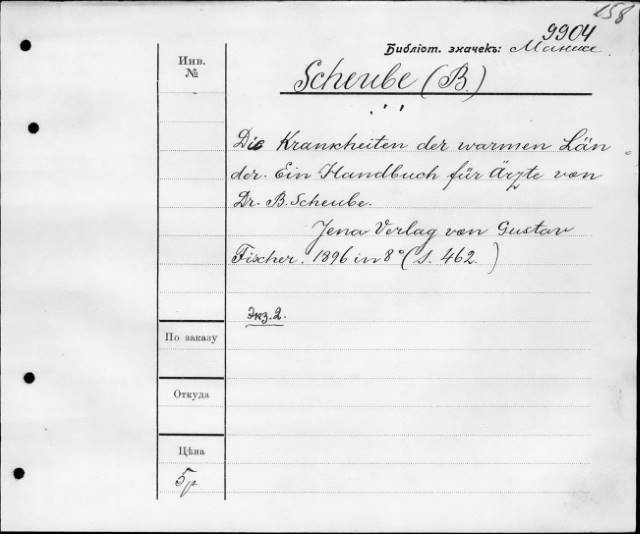 158
9904
Библіот. значекъ:
Инв.
№
Scheube (B.)
Die Krankheiten der warmen Län-
der. Ein Handbuch für Ärzte von
Dr. B. Scheube.
Jena Verlag von Gustav
Fischer. 1896 in 8° (S. 462.)
Экз. 2.
По заказу
Откуда
Цѣна
5р